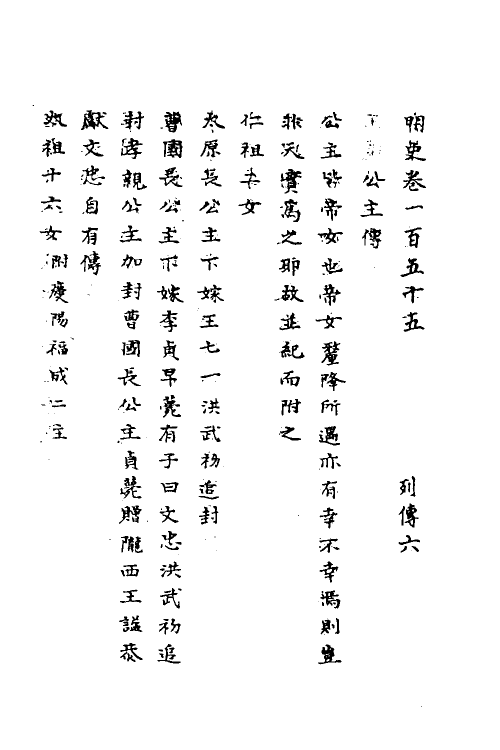 明史卷一百五十五 列傳六
公主傳
公主皆帝女也帝女釐降所遇亦有幸不幸焉則豈
非天實為之耶故並紀而附之
仁祖二女
太原長公主下嫁王七一洪武初追封
曹國長公主下嫁李貞早薨有子曰文忠洪武初追
封孝親公主加封曹國長公主貞薨贈隴西王諡恭
獻文忠自有傳
太祖十六女附慶陽福成二主